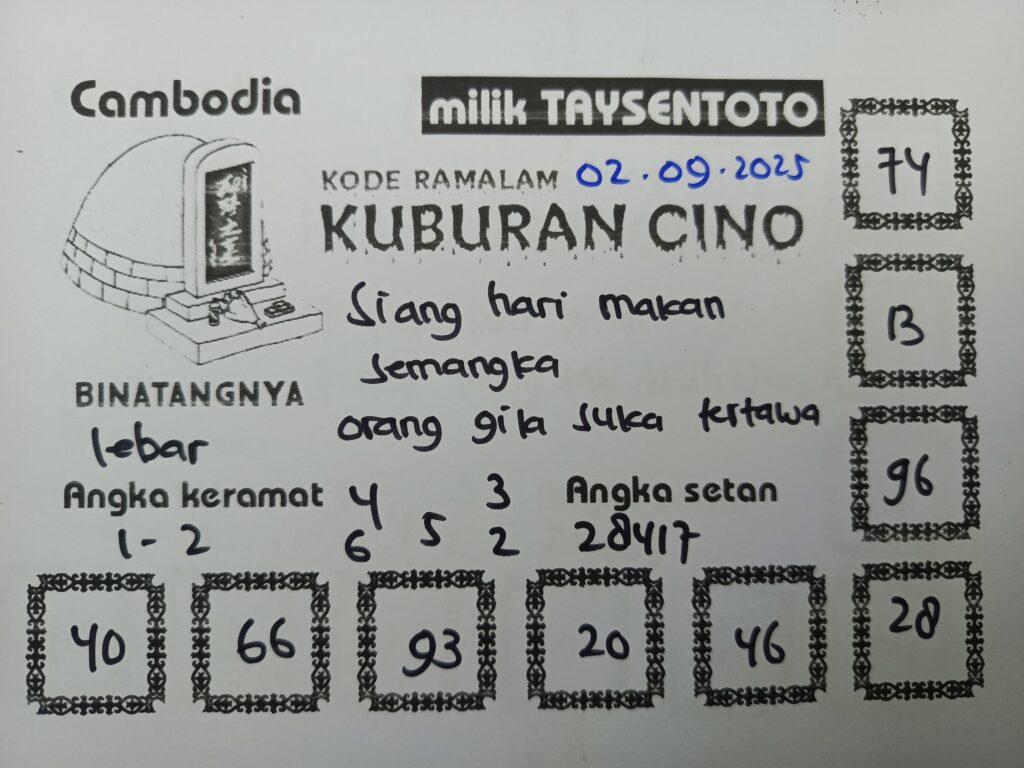 Cambodia
milik TAYSENTOTO
KODE RAMALAM 02.09.2025
KUBURAN CINO
Siang hari makan
semangka
orang gila suka tertawa
BINATANGNYA
lebar
Angka keramat
1-2
4 3
5
6 2
Angka setan
28417
74
13
96
28
40
66
93
20
46